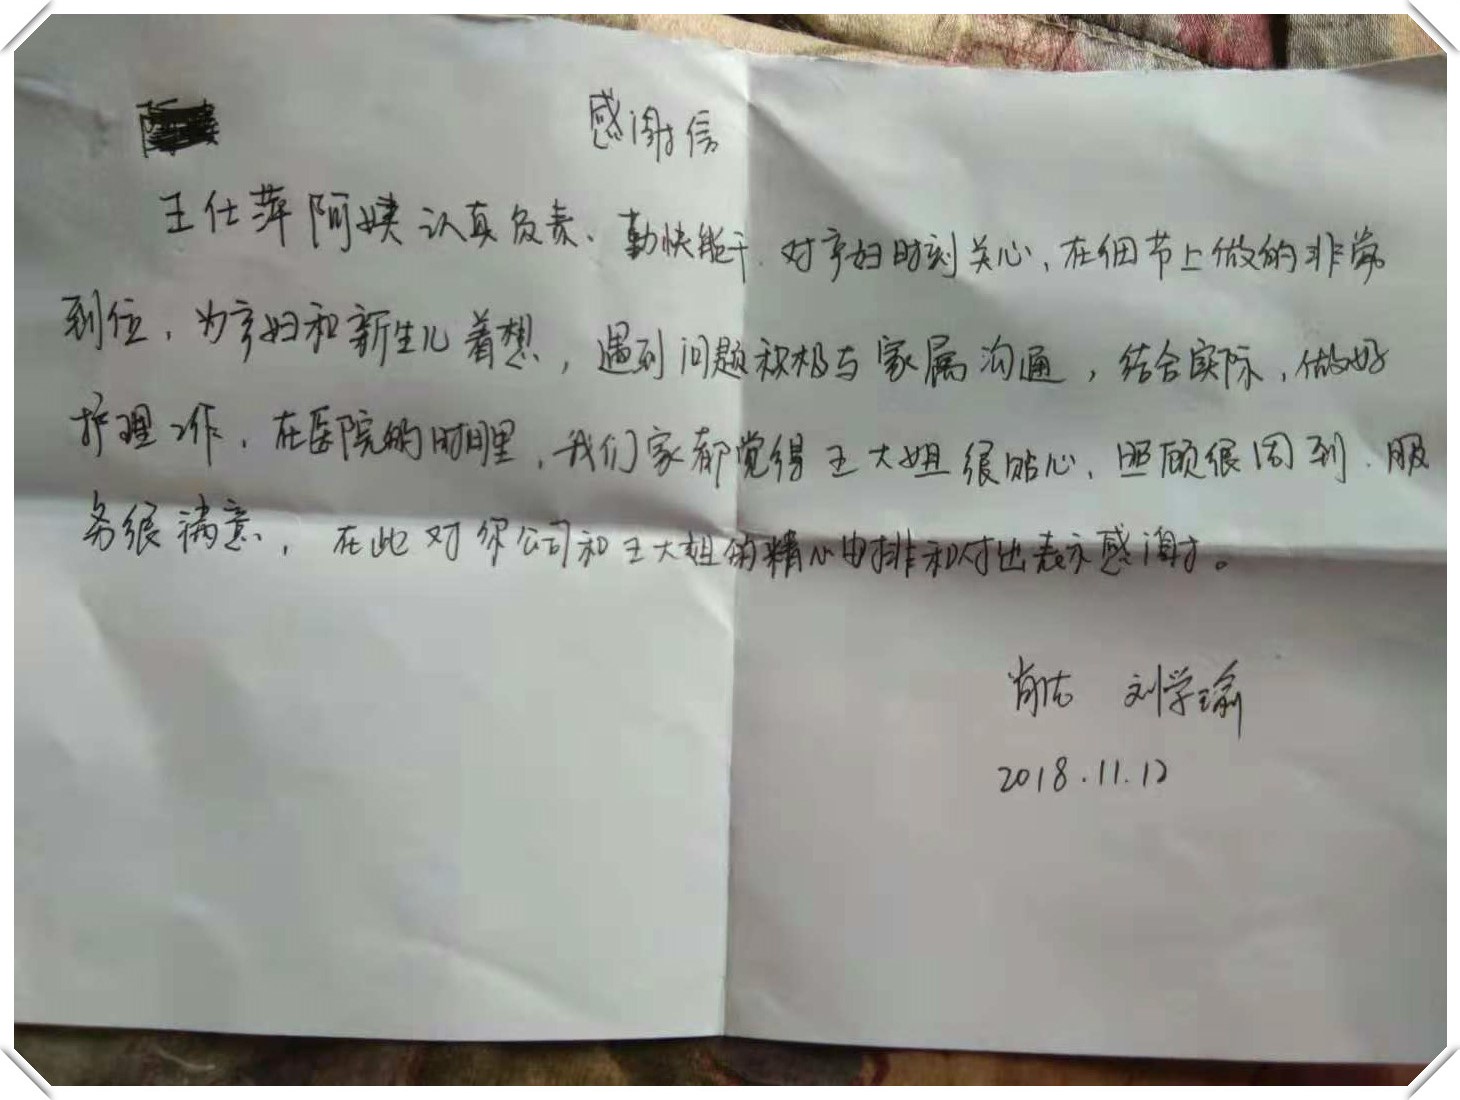 感谢信
王仕萍阿姨认真负责、勤快能干、对产妇时刻关心，在细节上做的非常
到位，为产妇和新生儿着想，遇到问题积极与家属沟通，结合实际，做好
护理工作，在医院的时间里，我们家都觉得王大姐很贴心，照顾很周到，服
务很满意，在此对你公司和王大姐的精心安排和付出表示感谢。
刘学瑜
2018.11.12